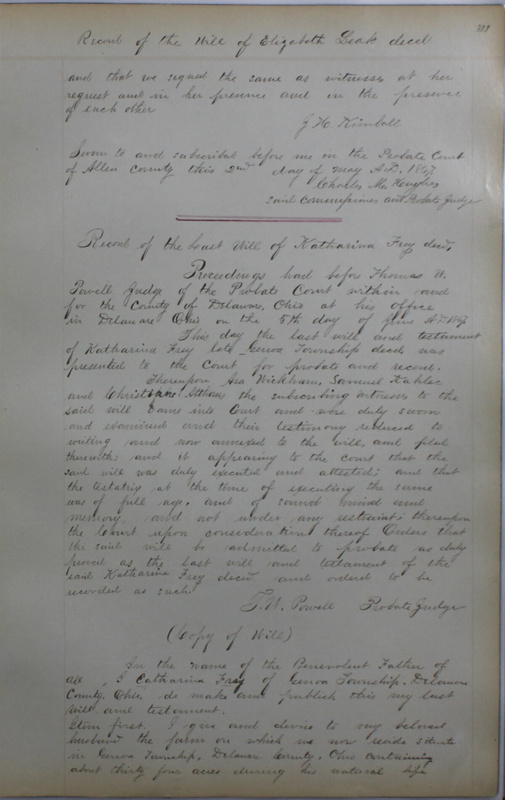 Record of the Will of Elizabeth Leak decd
and that we signed the same as witnesses at her
request and in her presence and in the presence
of each other
Z H. Kimball
Sworn to and subscribed before me in the Probate Court
of Allen County this 2nd day of May A.D.
Charles M. Hughes
said Commissioner and Probate Judge
Record of the Last Will of Katharina Frey decd.
Proceedings had before Thomas W.
Powell Judge of the Probate Court within and
for the County of Delaware, Ohio at his office
in Delaware Ohio on the 5th day of June A.D.
This day the last will and testament
of Katharina Frey late Genoa Township decd was
presented to the Court for probate and record.
Thereupon Asa Wickham, Samuel
and the subscribing witnesses to the
said will came into Court and were duly sworn
and examined and their testimony reduced to
writing and now annexed to the will, and filed
therewith: and it appearing to the court that the
said will was duly executed and attested; and that
the testatrix at the time of executing the same
was of full age, and of sound mind and
memory and not under any restraint: thereupon
the Court upon consideration thereof Orders that
the said will be admitted to probate as duly
proved as the last will and testament of the
said Katharina Frey decd and ordered to be
recorded as such.
T. W. Powell Probate Judge
(Copy of Will)
In the name of the Benevolent Father of
all, I Catharina Frey of Genoa Township, Delaware
County, Ohio, do make and publish this my last
will and testament.
Item first. I give and devise to my beloved
husband the farm on which we now reside situate
in Genoa Township, Delaware County, Ohio containing
about thirty four acres during his natural life